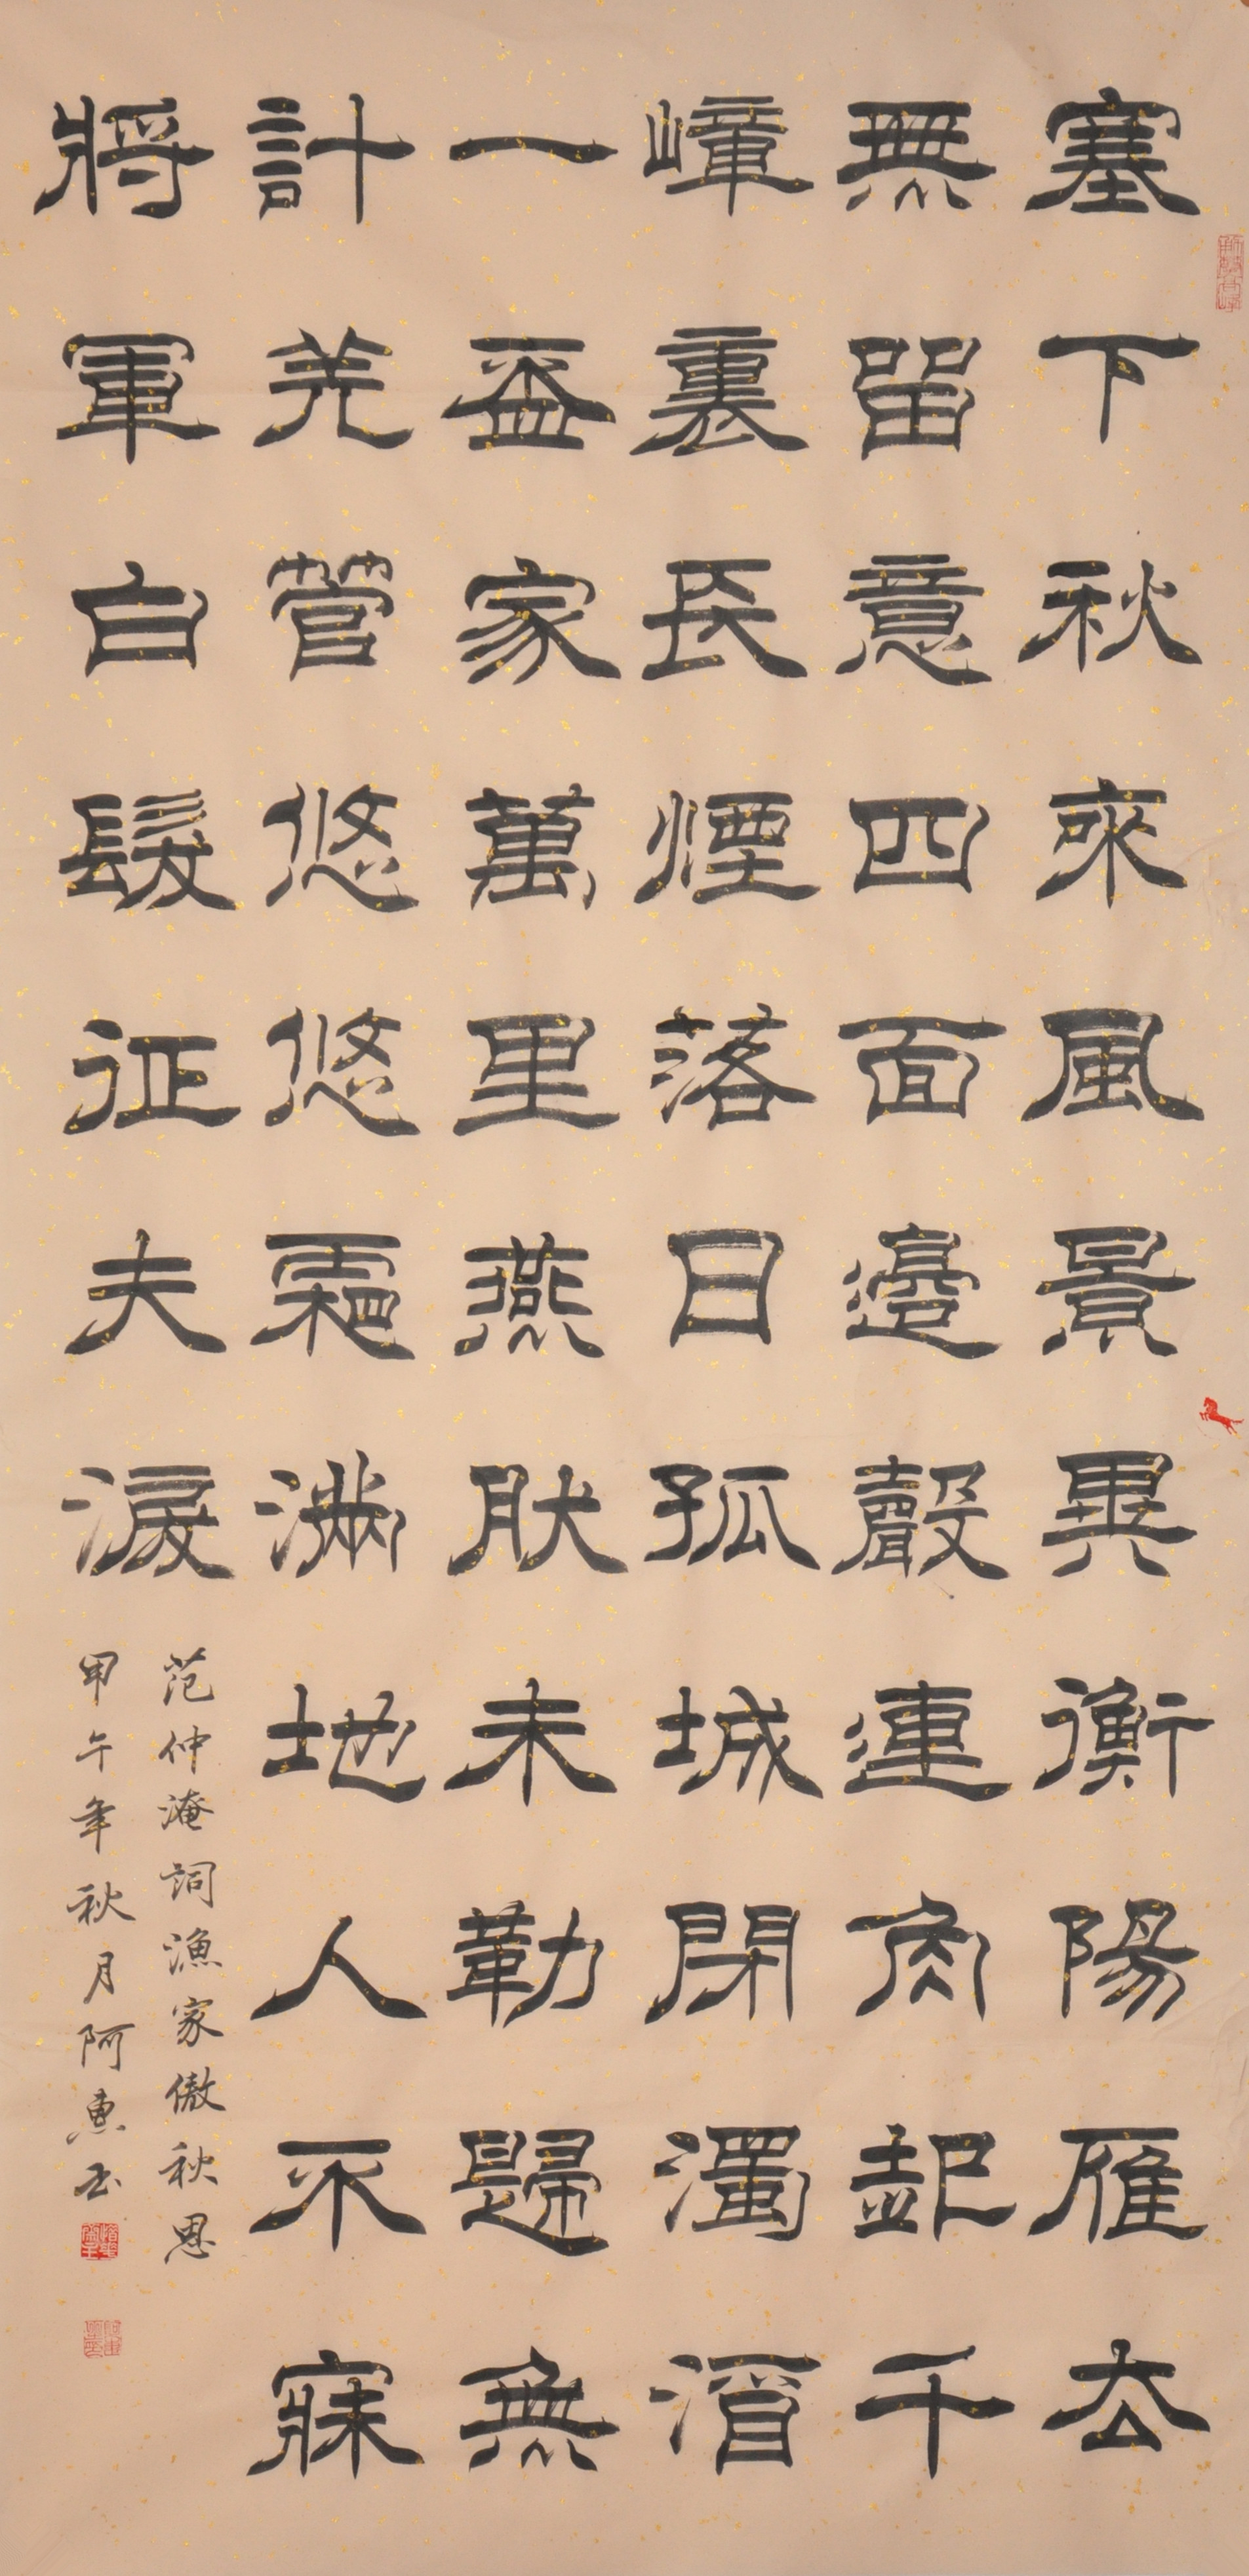 塞下秋來風景異衡陽雁去
無留意四面邊聲連角起千
嶂裏長煙落日孤城閉濁酒
一盃家萬里燕肰未勒歸無
計羌管悠悠霜滿地人不寐
將軍白髮征夫淚
范仲淹詞漁家傲秋思
甲午年秋月阿惠书